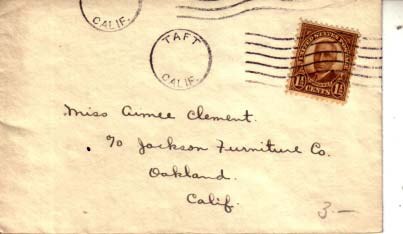 CALIF.
TAFT
CALIF.
UNITED STATES POSTAGE
1½ CENTS 1½
Miss Aimee Clement.
% Jackson Furniture Co.
Oakland.
Calif.
3.—